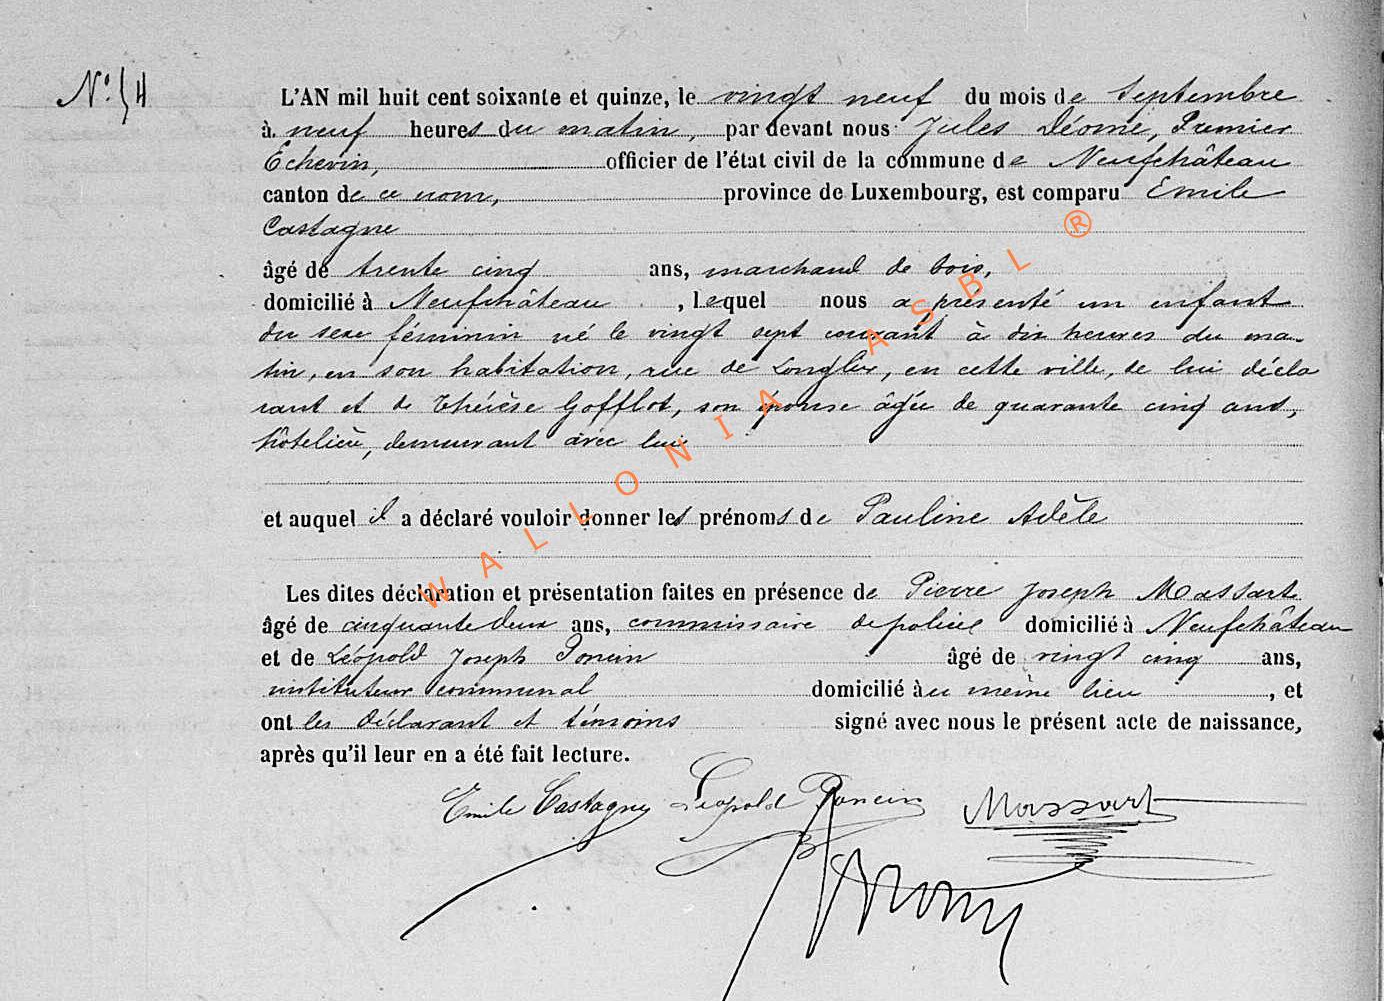 N° 54
L'AN mil huit cent soixante et quinze, le vingt neuf du mois de Septembre
à neuf heures du matin, par devant nous Jules Déome, Premier
Echevin, officier de l'état civil de la commune de Neufchâteau
canton de ce nom, province de Luxembourg, est comparu Emile
Castagne
âgé de trente cinq ans, marchand de bois,
domicilié à Neufchâteau, lequel nous a présenté un enfant
du sexe féminin né le vingt sept courant à dix heures du ma-
tin, en son habitation, rue de Longlier, en cette ville, de lui décla
rant et de Thérèse Gofflot, son épouse âgée de quarante cinq ans,
hôtelière, demeurant avec lui
et auquel il a déclaré vouloir donner les prénoms de Pauline Adèle
Les dites déclaration et présentation faites en présence de Pierre Joseph Massart
âgé de cinquante deux ans, commissaire de police domicilié à Neufchâteau
et de Léopold Joseph Poncin âgé de vingt cinq ans,
instituteur communal domicilié au même lieu, et
ont les déclarant et témoins signé avec nous le présent acte de naissance,
après qu'il leur en a été fait lecture.
Emile Castagne Léopold Poncin Massart
WALLONIA ASBL ®